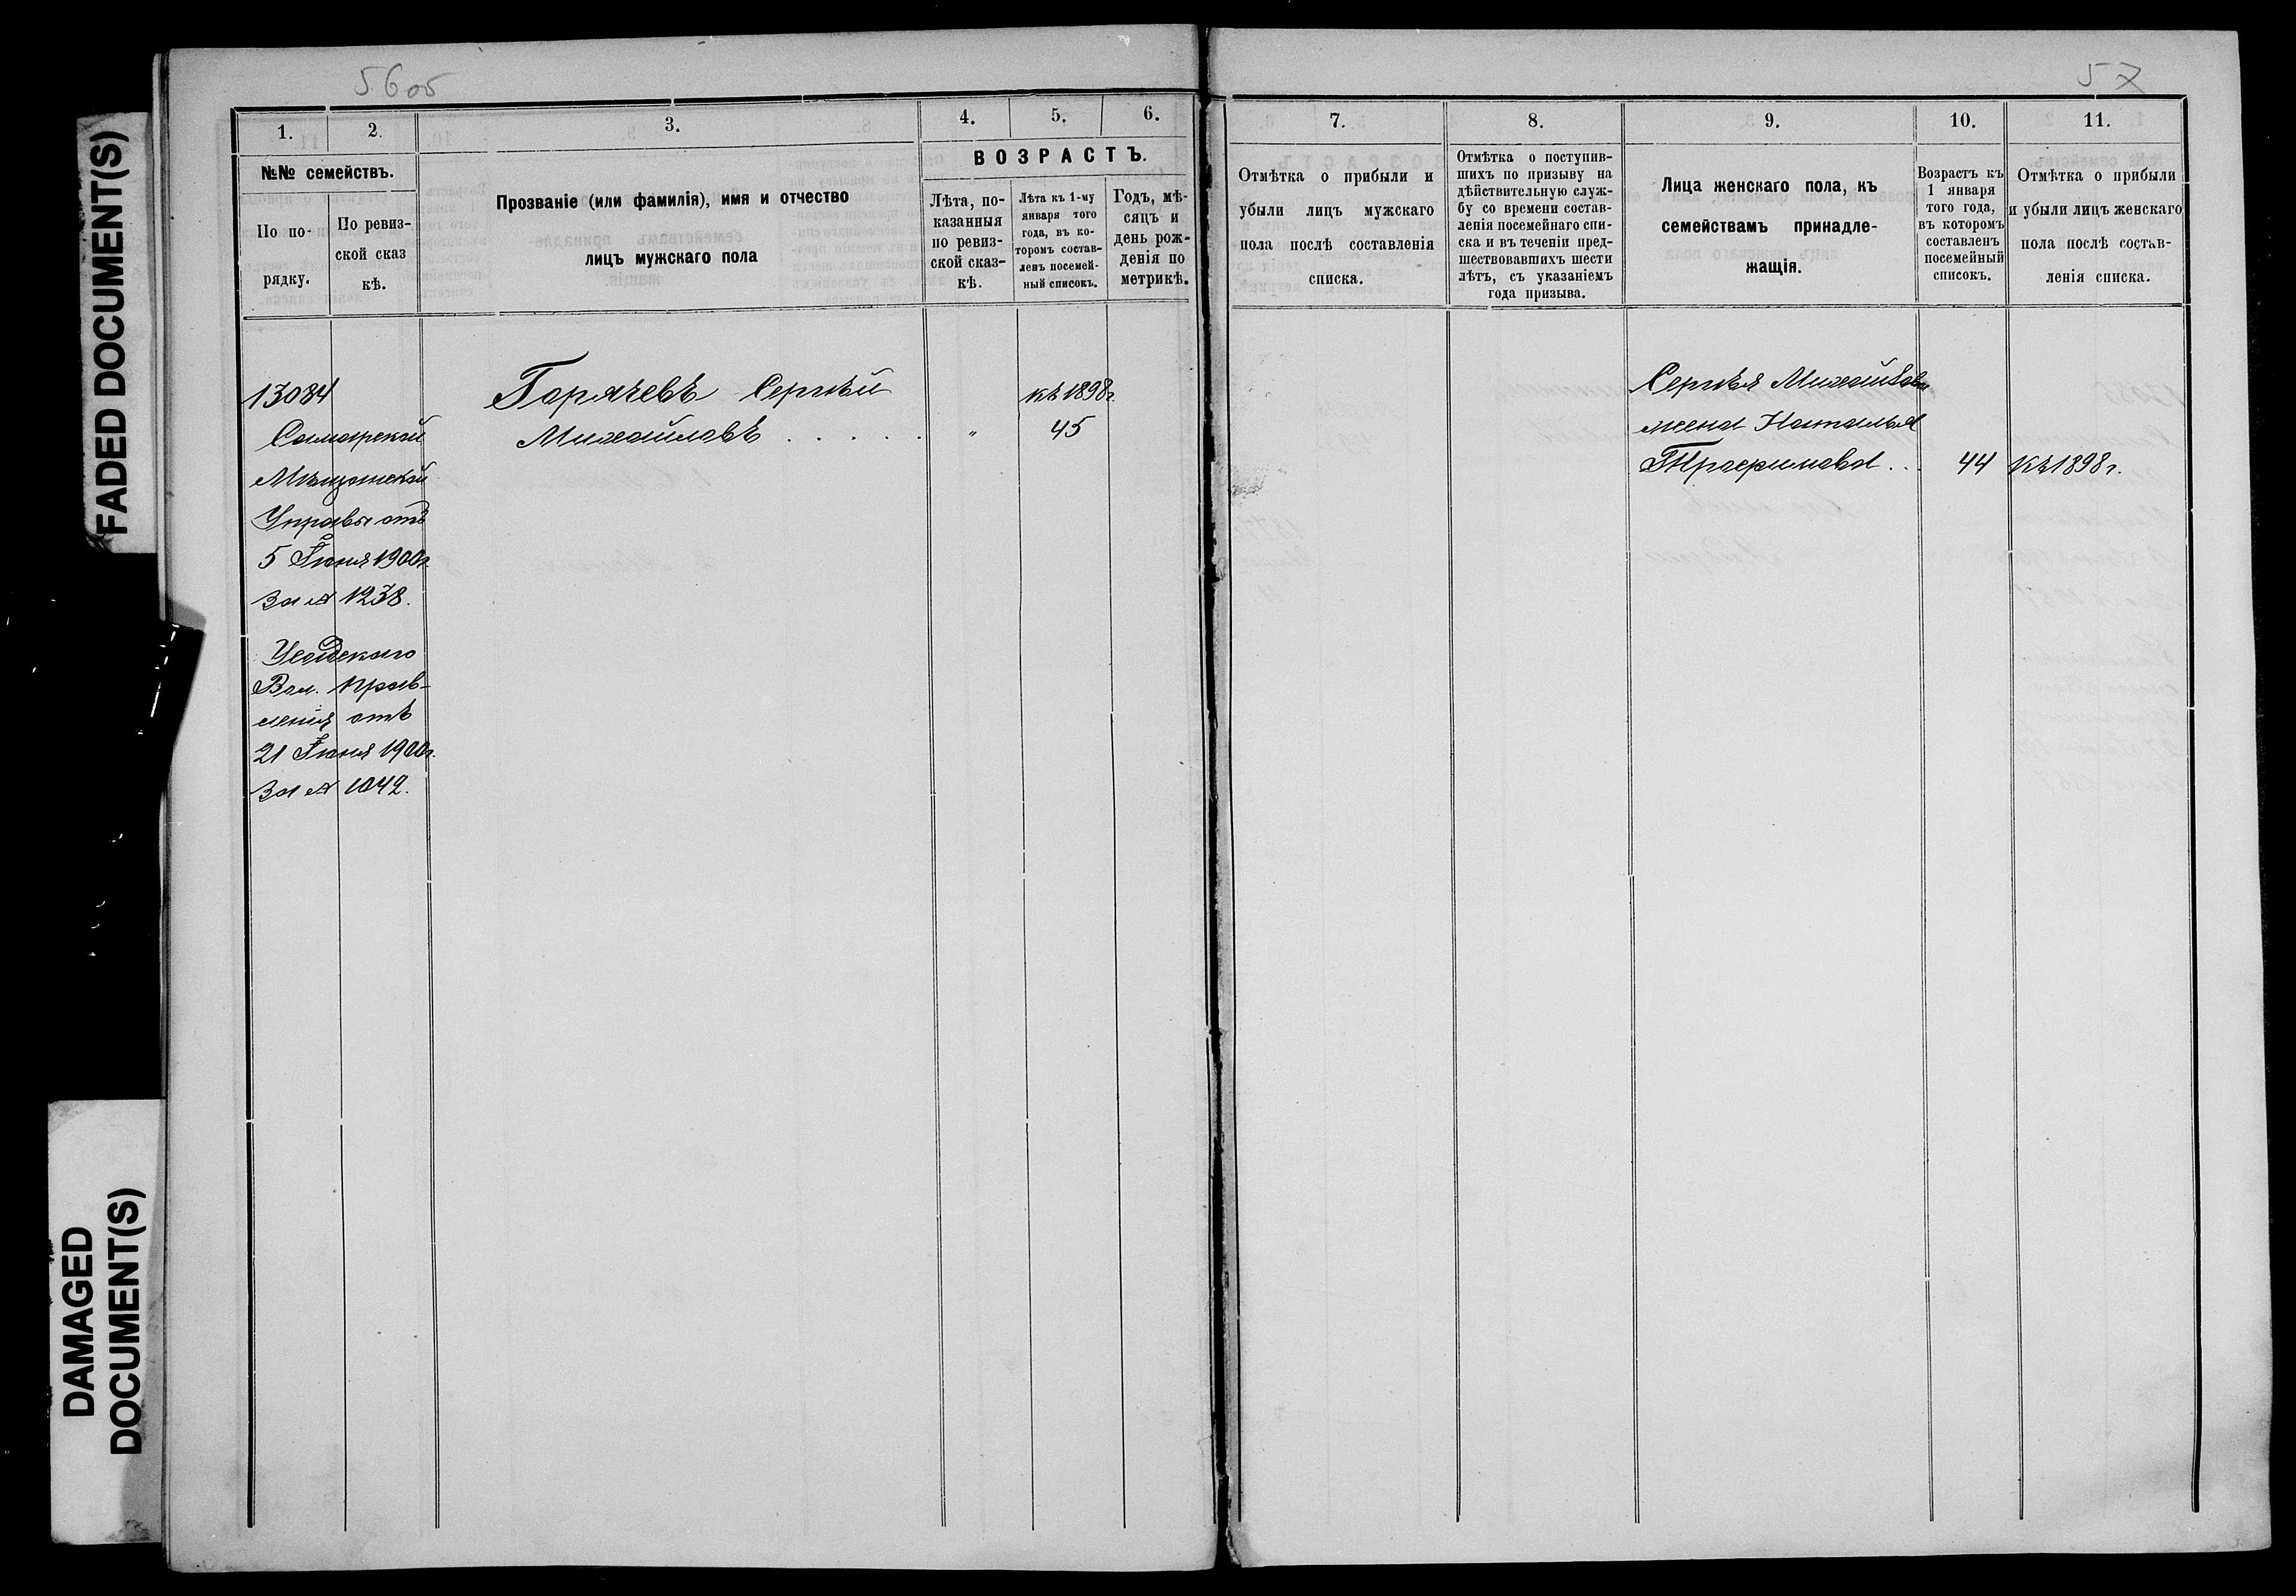 FADED DOCUMENT(S)
DAMAGED
DOCUMENT(S)
56об
57
1.
2.
3.
4.
5.
6.
№№ семействъ.
По по-
рядку.
По ревиз-
ской сказ
кѣ.
Прозваніе (или фамилія), имя и отчество
лицъ мужскаго пола
ВОЗРАСТЪ.
Лѣта, по-
казанныя
по ревиз-
ской сказ-
кѣ.
Лѣта къ 1-му
января того
года, въ ко-
торомъ состав-
ленъ посемей-
ный списокъ.
Годъ, мѣ-
сяцъ и
день рож-
денія по
метрикѣ.
13084
Самарской
Мѣщанской
Управы отъ
5 Іюня 1900г.
за № 1238.
Усадскаго
Вол. Прав-
ленія отъ
21 Іюня 1900г.
за № 1042.
Горячевъ Сергѣй
Михайловъ . . . . .
"
къ 1898г.
45
7.
8.
9.
10.
11.
Отмѣтка о прибыли и
убыли лицъ мужскаго
пола послѣ составленія
списка.
Отмѣтка о поступив-
шихъ по призыву на
дѣйствительную служ-
бу со времени состав-
ленія посемейнаго спи-
ска и въ теченіи пред-
шествовавшихъ шести
лѣтъ, съ указаніемъ
года призыва.
Лица женскаго пола, къ
семействамъ принадле-
жащія.
Возрастъ къ
1 января
того года,
въ которомъ
составленъ
посемейный
списокъ.
Отмѣтка о прибыли
и убыли лицъ женскаго
пола послѣ состав-
ленія списка.
Сергѣя Михайлова
жена Наталья
Трофимова . . 44 къ 1898 г.